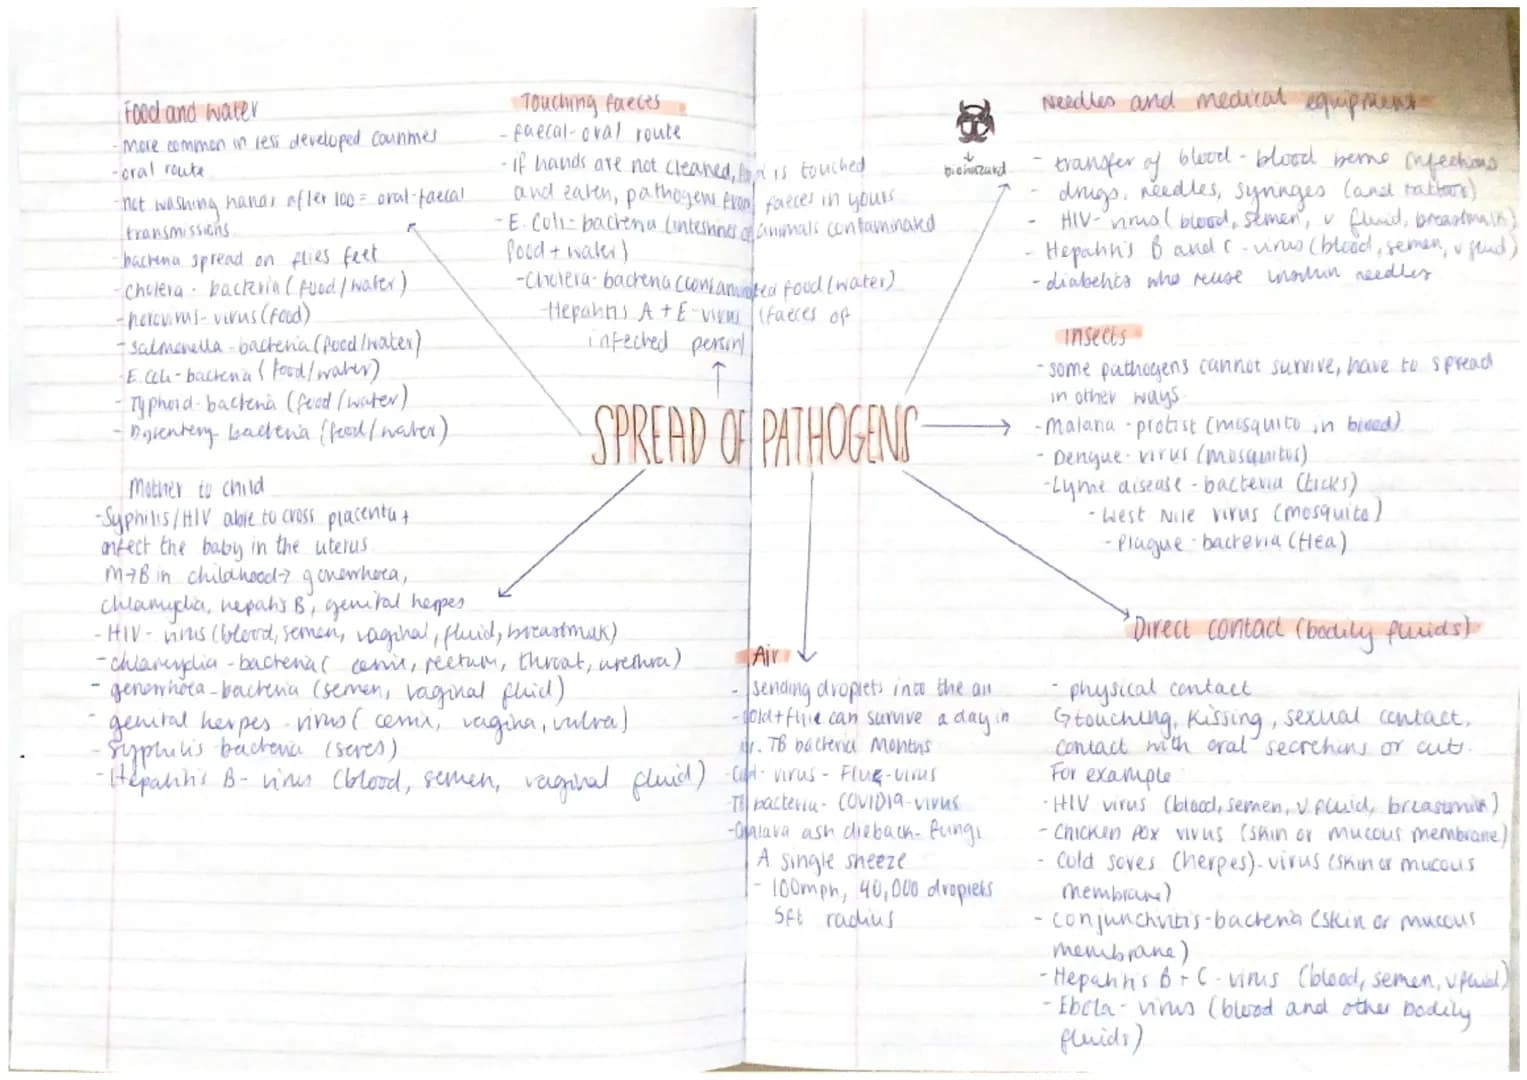 Food and water
- More common in less developed countries
- oral route
- not washing hands after loo = oral-faecal
transmissions
- bacteria spread on flies feet
- cholera - bacteria (food/water)
- norovirus - virus (food)
- Salmonella - bacteria (food/water)
- E. coli - bacteria (food/water)
- Typhoid - bacteria (food/water)
- Dysentery - bacteria (food/water)
Touching faeces
- faecal-oral route
- if hands are not cleaned, food is touched
and eaten, pathogens from faeces in yours
- E. Coli - bacteria (intestines of animals contaminated
food + water)
- Cholera - bacteria (contaminated food (water)
- Hepatitis A + E - virus (faeces of
infected person)
biohazard
Needles and medical equipment
- transfer of blood - blood borne infections
- drugs, needles, syringes (and tattoos)
- HIV - virus (blood, semen, v fluid, breastmilk)
- Hepatitis B and C - virus (blood, semen, v fluid)
- diabetics who reuse insulin needles
Insects
- some pathogens cannot survive, have to spread
in other ways
- Malaria - protist (mosquito in blood)
- Dengue - virus (mosquitos)
- Lyme disease - bacteria (ticks)
- West Nile virus (mosquito)
- Plague - bacteria (flea)
SPREAD OF PATHOGENS
Mother to child
- Syphilis/HIV able to cross placenta +
infect the baby in the uterus
M→B in childhood→ gonorrhoea,
chlamydia, hepatis B, genital herpes
- HIV - virus (blood, semen, vaginal, fluid, breastmilk)
- chlamydia - bacteria ( cervix, rectum, throat, urethra)
- gonorrhoea - bacteria (semen, vaginal fluid)
- genital herpes - virus ( cervix, vagina, vulva)
- Syphilis bacteria (sores)
- Hepatitis B - virus (blood, semen, vaginal fluid)
Air
- sending droplets into the air
- Cold + flue can survive a day in
air. TB bacteria Months
Cold - virus - Flue - virus
TB bacteria - COVID19 - virus
- Chalara ash dieback - fungi
A single sneeze
- 100mph, 40,000 droplets
5ft radius
Direct contact (bodily fluids)
- physical contact
↳ touching, kissing, sexual contact,
contact with oral secretions or cuts.
For example:
- HIV virus (blood, semen, v fluid, breastmilk)
- Chicken Pox virus (skin or mucous membrane)
- Cold sores (herpes) - virus (skin or mucous
membrane)
- conjunctivitis - bacteria (skin or mucous
membrane)
- Hepatitis B + C - virus (blood, semen, v fluid)
- Ebola - virus (blood and other bodily
fluids)